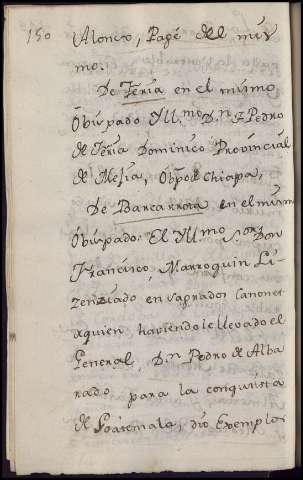 150
Alonso, Page del mis
mo.
De Feria en el mismo
Obispado Yll.mo D.n F. Pedro
de Feria Dominico Provincial
de Mejia, Obpo de Chiapa,
De Barcarrota en el mism
Obispado. El Yllmo Sor Don
Francisco Marroquin Li-
zenziado en sagrados Canones
aquien haviendole llevado el
General, Dn Pedro de Alba
rado para la conquista
de Goatemala, dio Exemplos